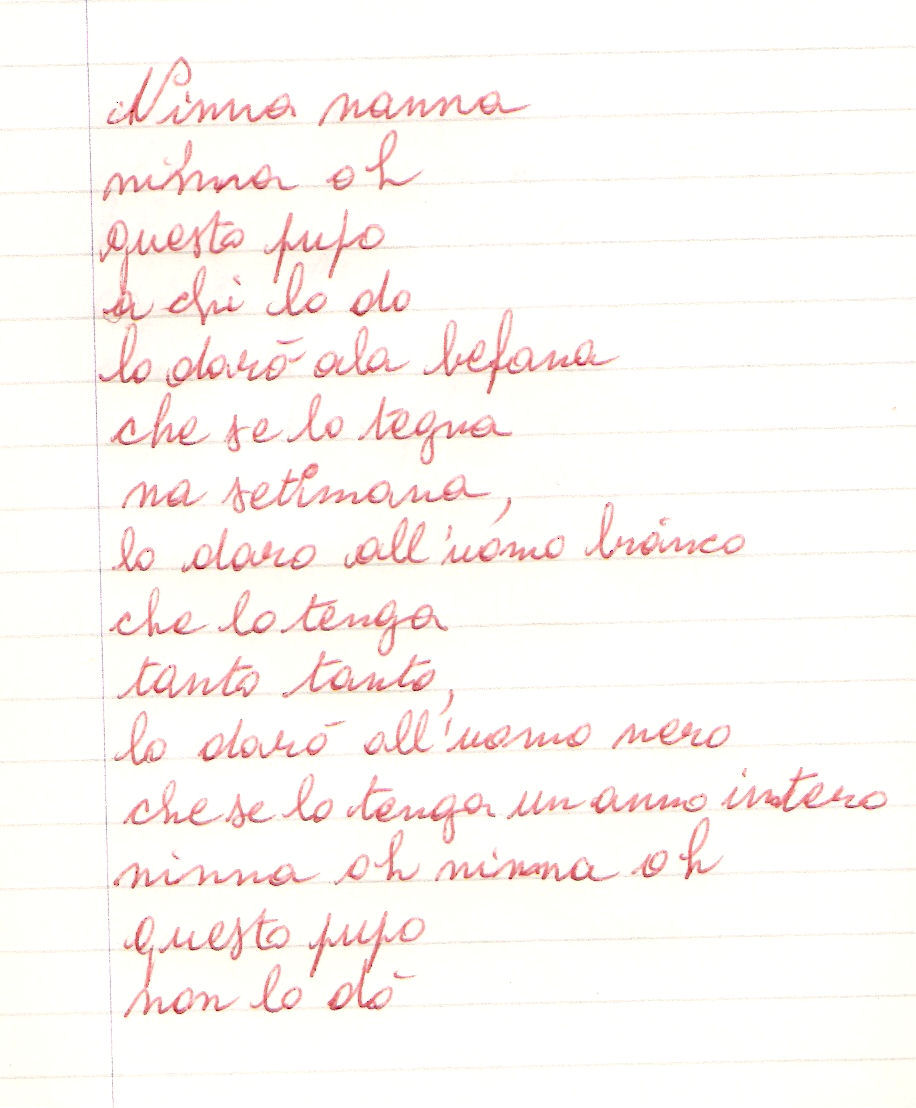 Ninna nanna
ninna oh
questo pupo
a chi lo do
lo darō ala befana
che se lo tegna
na setimana,
lo daro all'uomo bianco
che lo tenga
tanto tanto,
lo darō all'uomo nero
che se lo tenga un anno intero
ninna oh ninna oh
questo pupo
non lo dō